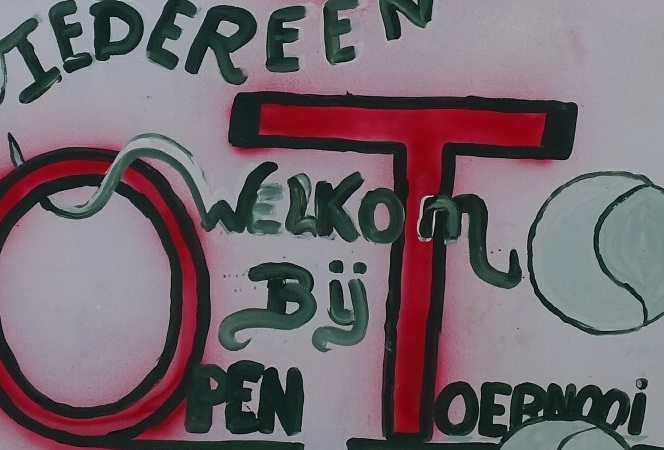 IEDEREEN
WELKOM
Bij
OPEN TOERNOOi